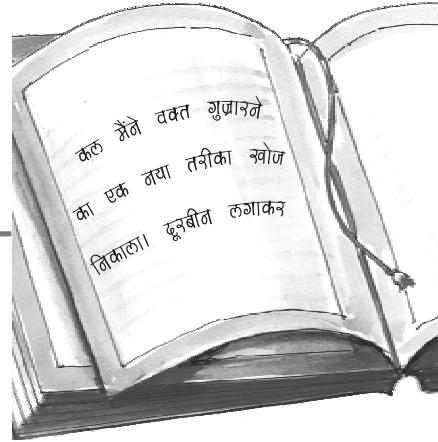 कल मैंने वक्त गुज़ारने
का एक नया तरीका खोज
निकाला। दूरबीन लगाकर